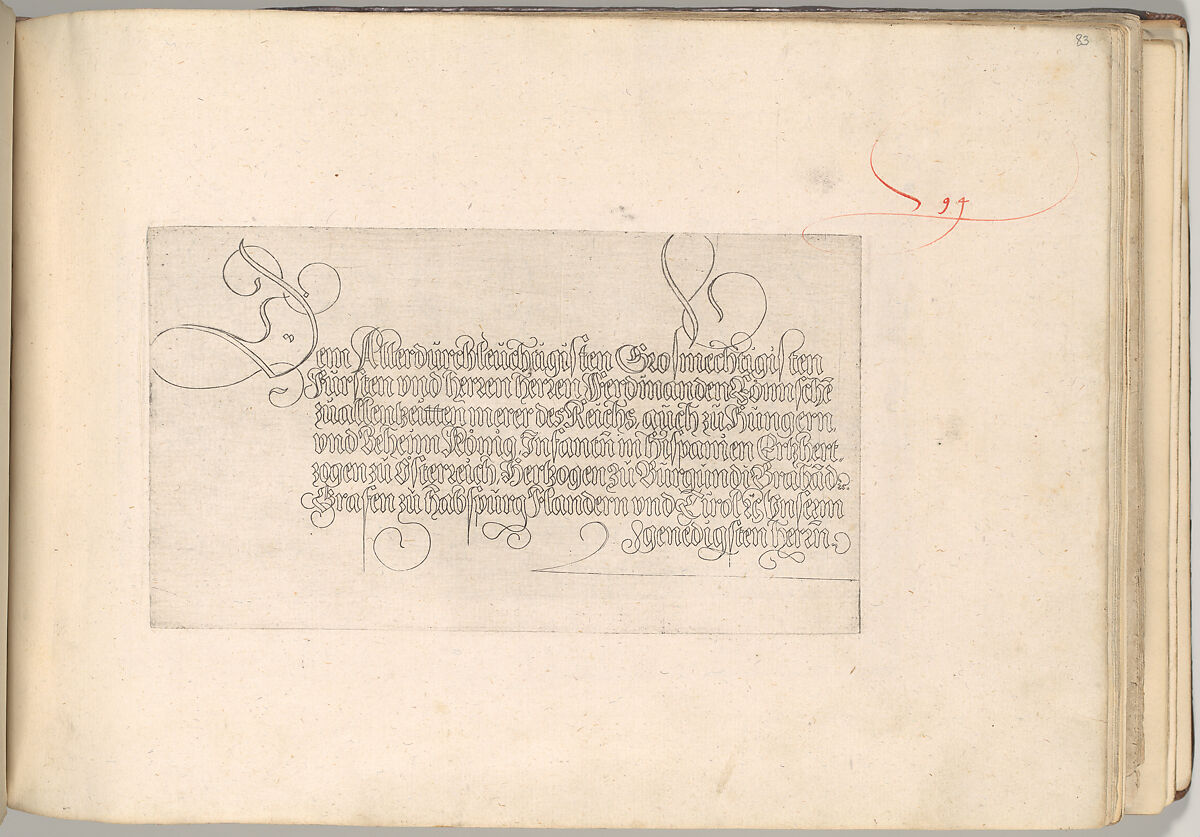 83
94
Dem Allerdurchleuchtigisten Grosmechtigisten
Fürsten vnd herren herren Ferdinanden Römischē
zu allen tzeitten merer des Reichs, auch zu Hungern,
vnd Beheim König, Infantñ in Hispanien Ertzhert-
zogen zu Österreich, Hertzogen zu Burgundi Brabād ꝛc.
Grafen zu habspurg Flandern vnd Tirol ꝛc Vnserm
genedigsten herrñ.